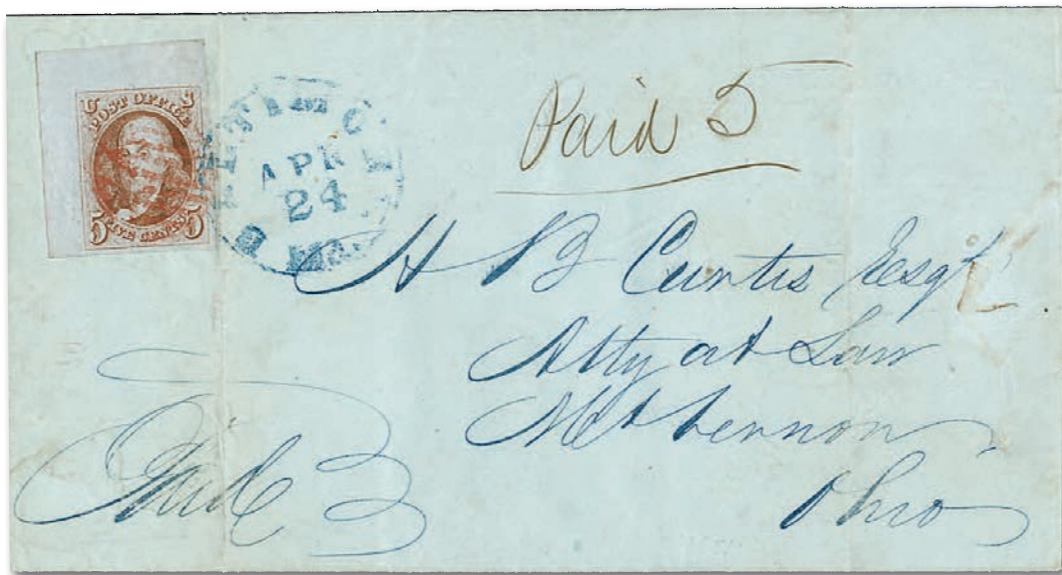 U S
POST OFFICE
5 FIVE CENTS 5
BALTIMORE Md.
APR
24
Paid 5
H B Curtis Esqr
Atty at Law
Mt Vernon
Ohio
Paid 3